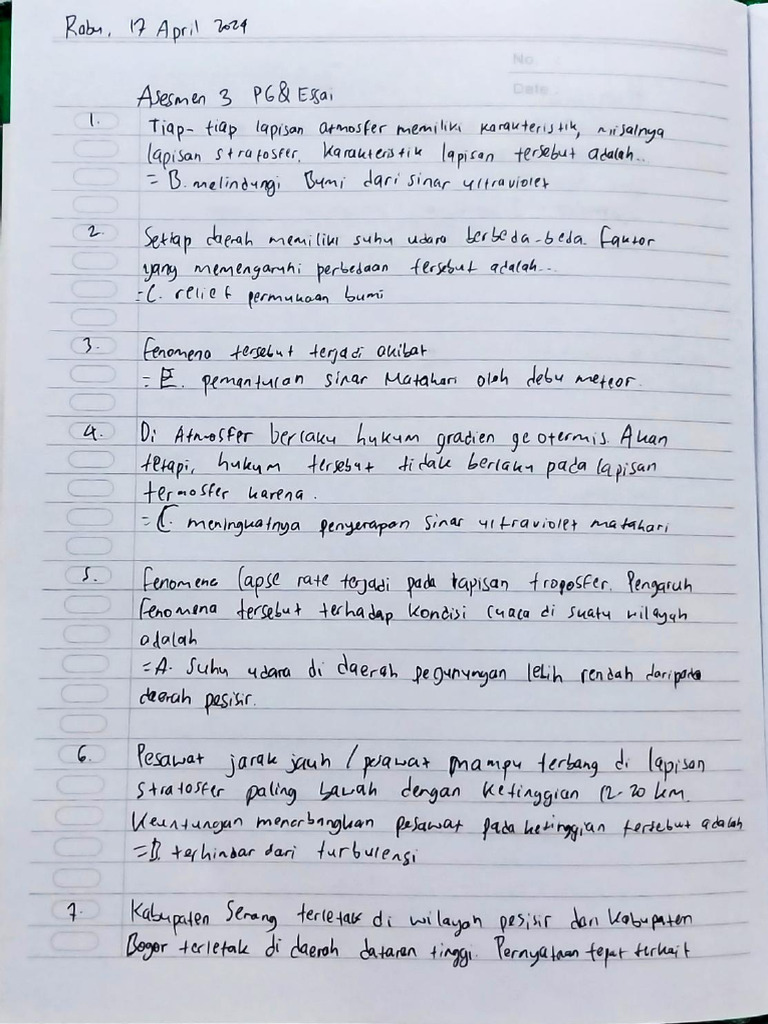 Rabu, 17 April 2024
No.
Date.
Asesmen 3 PG & Essai
1. Tiap-tiap lapisan atmosfer memiliki karakteristik, misalnya
lapisan stratosfer. Karakteristik lapisan tersebut adalah..
= B. melindungi Bumi dari sinar ultraviolet
2. Setiap daerah memiliki suhu udara berbeda-beda. Faktor
yang memengaruhi perbedaan tersebut adalah...
= C. relief permukaan bumi
3. Fenomena tersebut terjadi akibat
= E. pemantulan sinar Matahari oleh debu meteor.
4. Di Atmosfer berlaku hukum gradien geotermis. Akan
tetapi, hukum tersebut tidak berlaku pada lapisan
termosfer karena.
= C. meningkatnya penyerapan sinar ultraviolet matahari
5. Fenomena lapse rate terjadi pada lapisan troposfer. Pengaruh
fenomena tersebut terhadap kondisi cuaca di suatu wilayah
adalah
= A. Suhu udara di daerah pegunungan lebih rendah daripada
daerah pesisir.
6. Pesawat jarak jauh / pesawat mampu terbang di lapisan
stratosfer paling bawah dengan ketinggian 12-20 km.
Keuntungan menerbangkan pesawat pada ketinggian tersebut adalah
= D. terhindar dari turbulensi
7. Kabupaten Serang terletak di wilayah pesisir dan Kabupaten
Bogor terletak di daerah dataran tinggi. Pernyataan tepat terkait